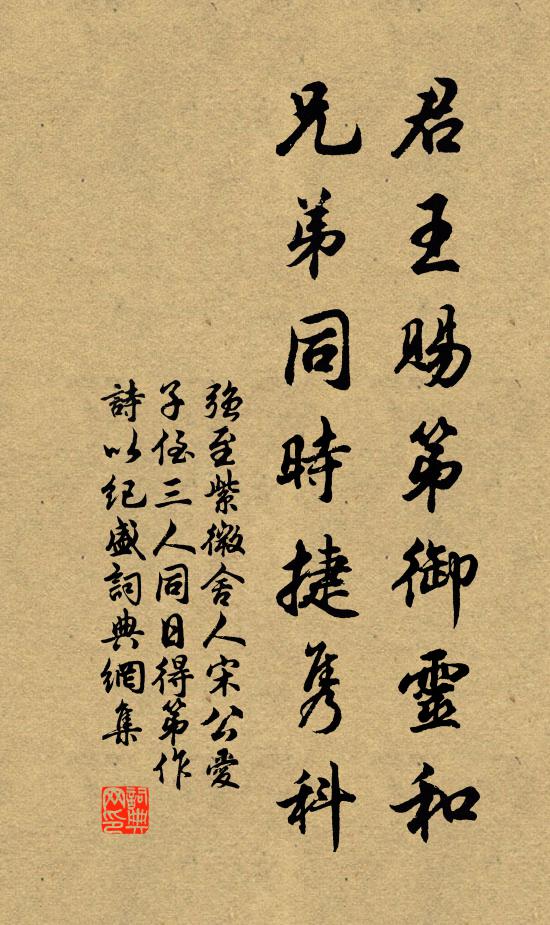 君王賜第御靈和
兄弟同時捷雋科
強至紫微舍人宋公愛
子侄三人同日得第作
詩以紀盛詞典網集
詞典
网印